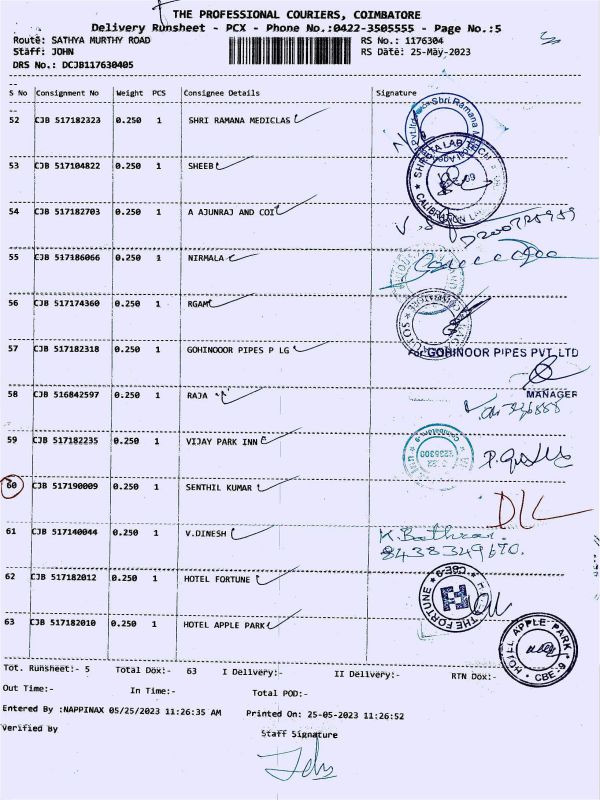 THE PROFESSIONAL COURIERS, COIMBATORE
Delivery Runsheet - PCX - Phone No.:0422-3505555 - Page No.:5
Route: SATHYA MURTHY ROAD RS No.: 1176304
Staff: JOHN RS Date: 25-May-2023
DRS No.: DCJB117630405
S No Consignment No Weight PCS Consignee Details Signature
52 CJB 517182323 0.250 1 SHRI RAMANA MEDICLAS
53 CJB 517104822 0.250 1 SHEEB
54 CJB 517182703 0.250 1 A AJUNRAJ AND COI
55 CJB 517186066 0.250 1 NIRMALA
56 CJB 517174360 0.250 1 RGAM
57 CJB 517182318 0.250 1 GOHINOOOR PIPES P LG
For GOHINOOR PIPES PVT. LTD
MANAGER
58 CJB 516842597 0.250 1 RAJA
59 CJB 517182235 0.250 1 VIJAY PARK INN
60 CJB 517190009 0.250 1 SENTHIL KUMAR
DLC
61 CJB 517140044 0.250 1 V.DINESH
8438349670.
62 CJB 517182012 0.250 1 HOTEL FORTUNE
THE FORTUNE
CBE-9
63 CJB 517182010 0.250 1 HOTEL APPLE PARK
HOTEL APPLE PARK
CBE-9
Tot. Runsheet:- 5 Total Dox:- 63 I Delivery:- II Delivery:- RTN Dox:-
Out Time:- In Time:- Total POD:-
Entered By :NAPPINAX 05/25/2023 11:26:35 AM Printed On: 25-05-2023 11:26:52
Verified By Staff Signature